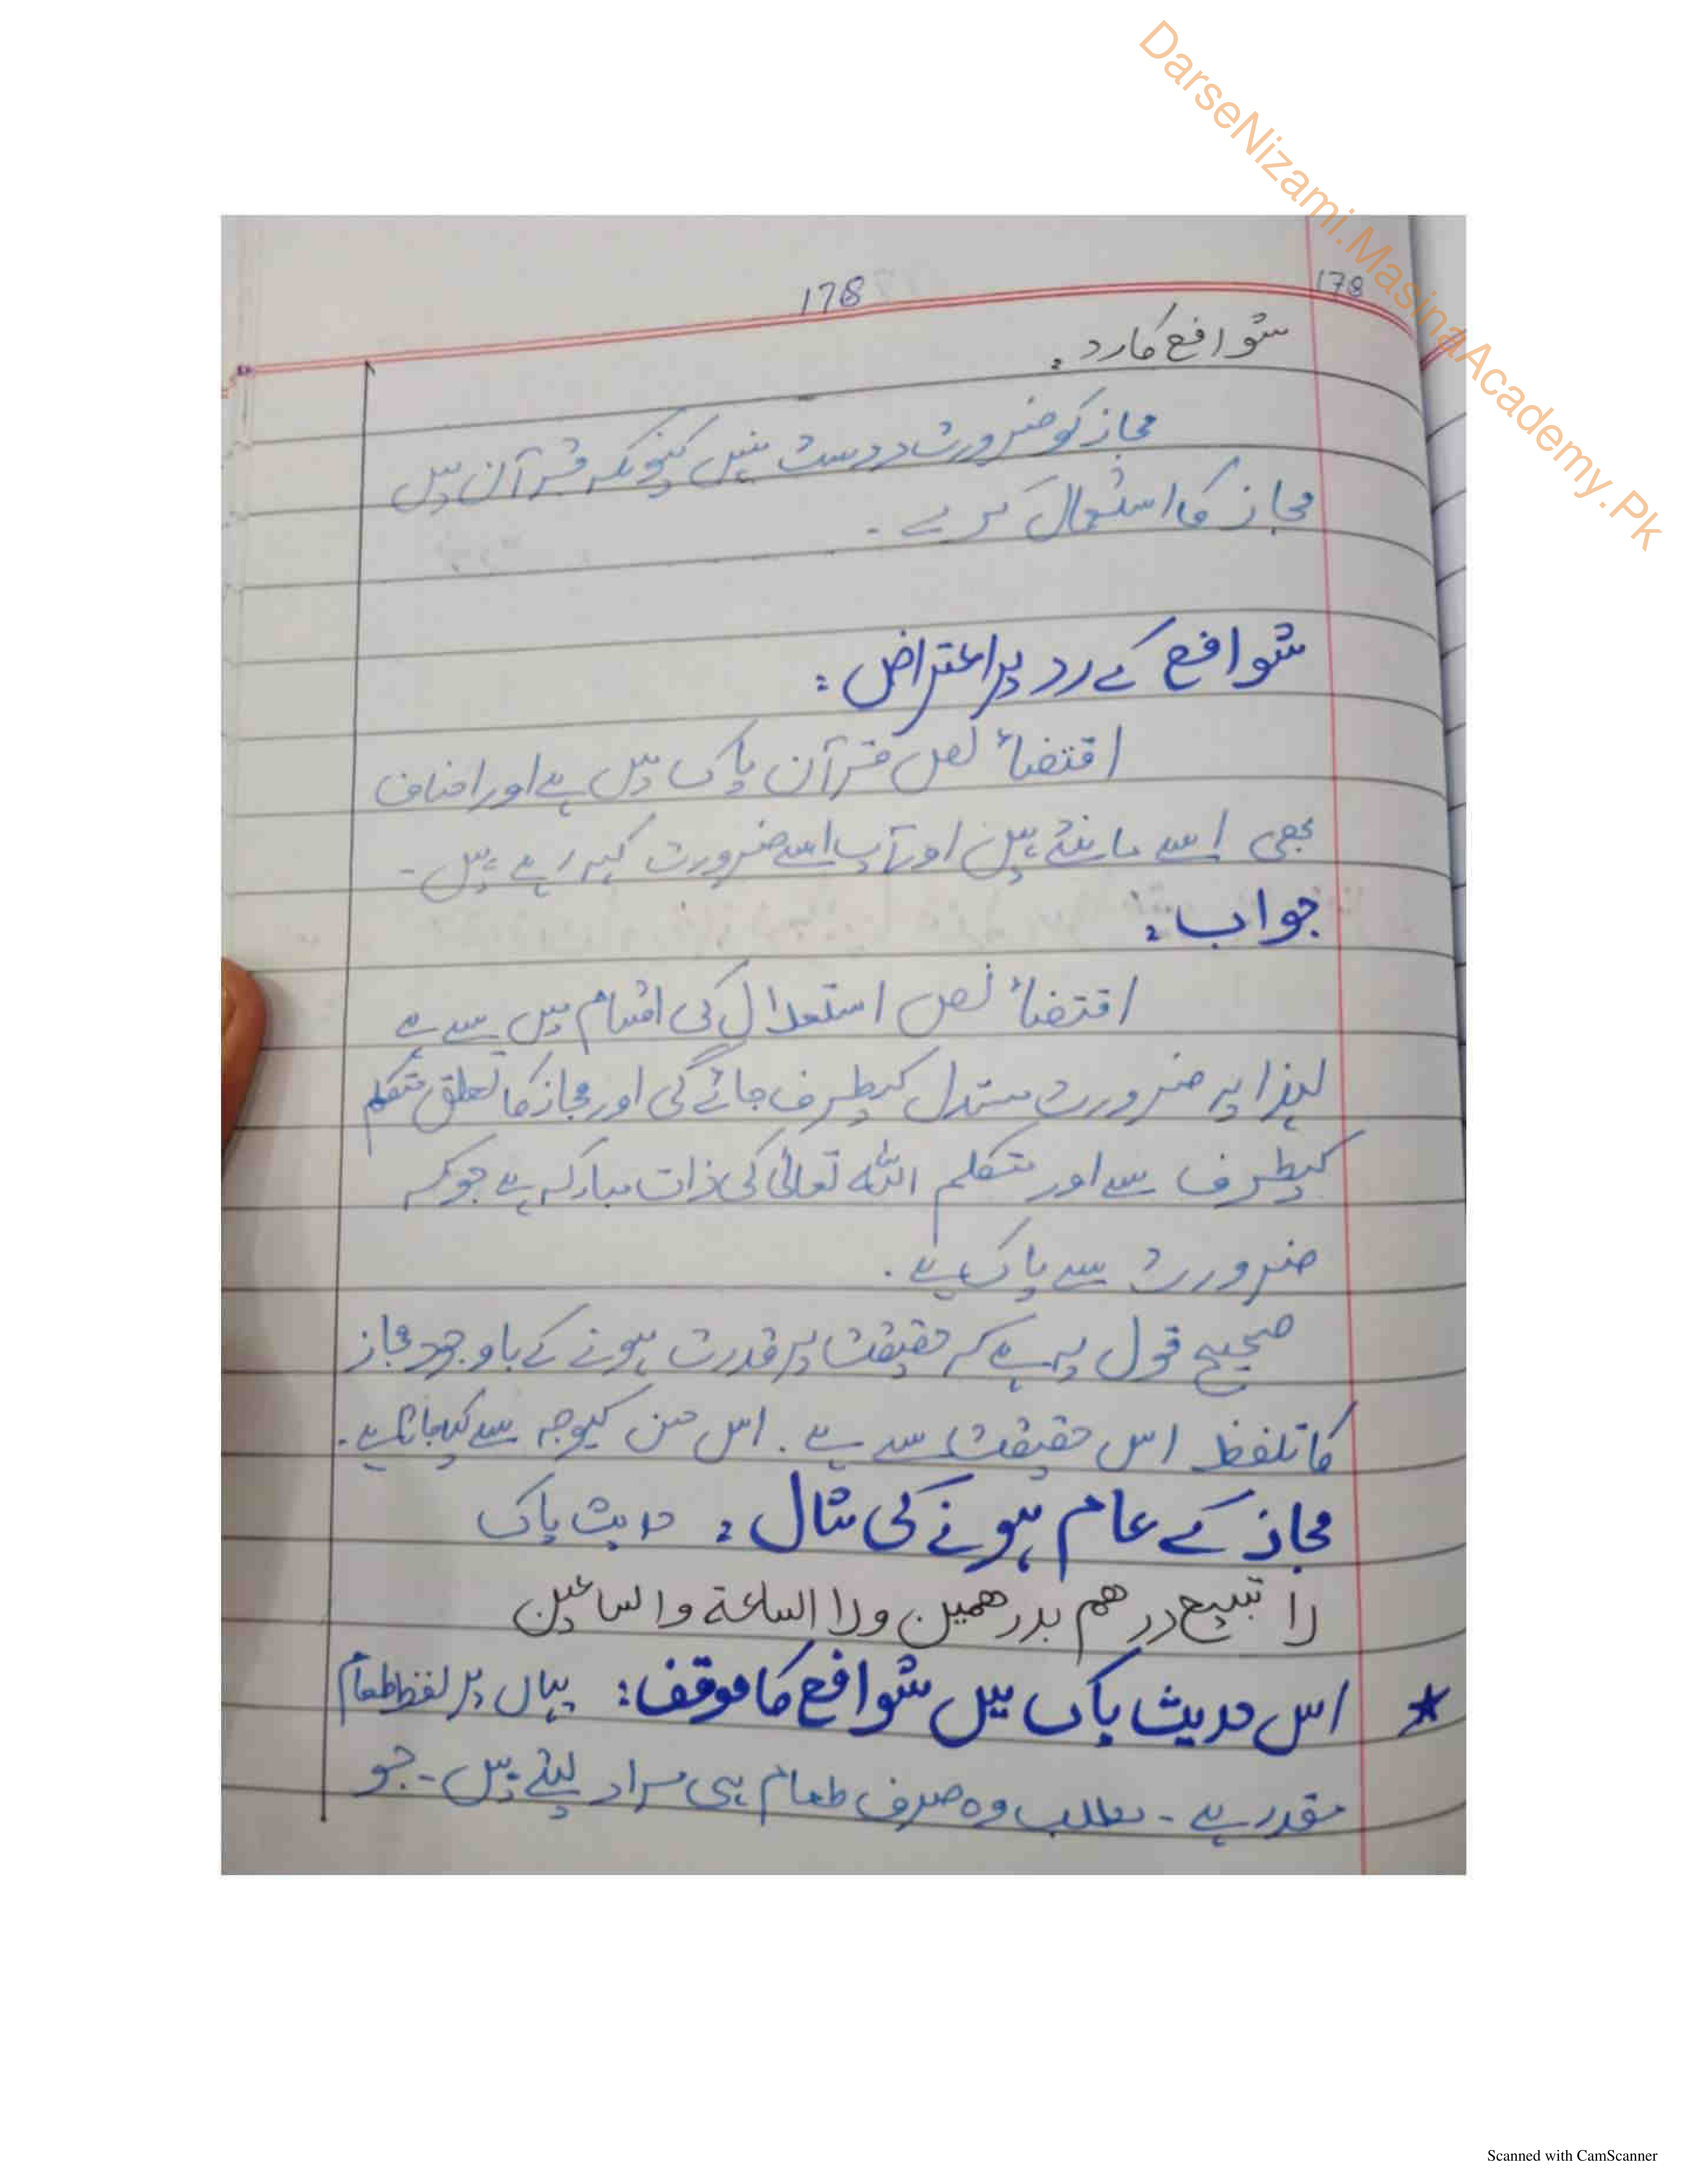 DarseNizami.MasinaAcademy.Pk
178
178
شوافع کا رد :
مجاز کو ضرورت درست نہیں کیونکہ قرآن میں
مجاز کا استعمال کر ہے ۔
شوافع کے رد پر اعتراض :
اقتضاءُ نص قرآن پاک میں ہے اور احناف
بھی اسے مانتے ہیں اور آپ اسے ضرورت کہہ رہے ہیں ۔
جواب :
اقتضاءُ نص استدلال کی اقسام میں سے ہے
لہذا یہ ضرورت مستدل کیطرف جائے گی اور مجاز کا تعلق متکلم
کیطرف سے اور متکلم اللہ تعالیٰ کی ذات مبارکہ ہے جو کہ
ضرورت سے پاک ہے ۔
صحیح قول یہ ہے کہ حقیقت پر قدرت ہونے کے باوجود مجاز
کا تلفظ اس حقیقت سے ہے ۔ اس حسن کیوجہ سے کیا جاتا ہے ۔
مجاز کے عام ہونے کی مثال : حدیث پاک
لا تبیع درھم بدرھمین ولا الساعة والساعین
★ اس حدیث پاک میں شوافع کا موقف : یہاں پر لفظ طعام
مقدر ہے ۔ مطلب وہ صرف طعام ہی مراد لیتے ہیں ۔ جو
Scanned with CamScanner